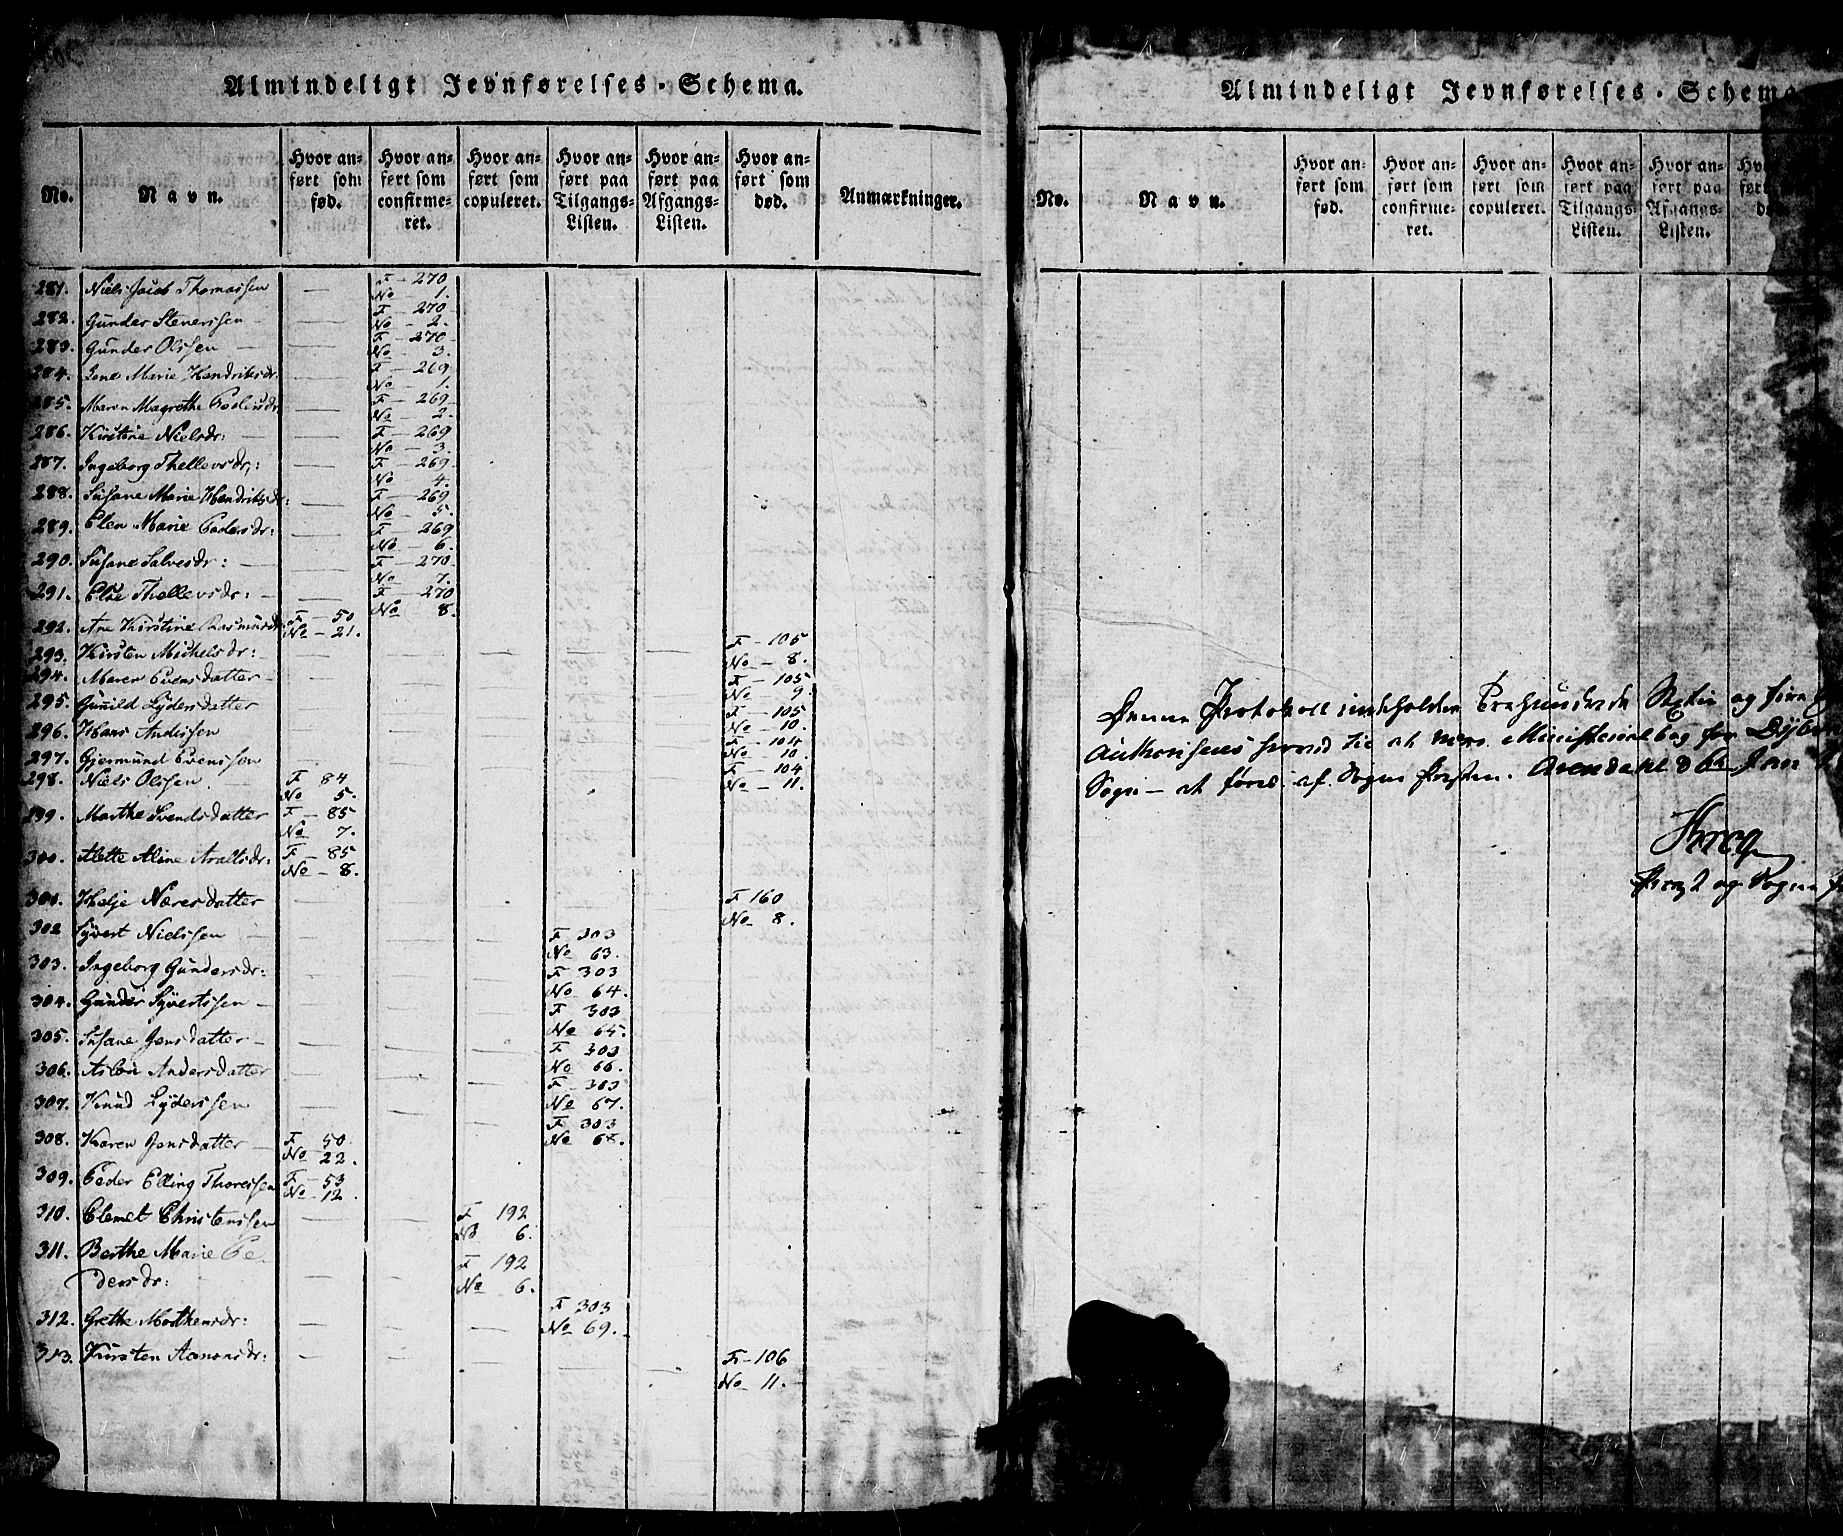 Almindeligt Jevnførelses-Schema.
No.
Navn.
Hvor anført som fød.
Hvor anført som confirmeret.
Hvor anført som copuleret.
Hvor anført paa Tilgangs-Listen.
Hvor anført paa Afgangs-Listen.
Hvor anført som død.
Anmærkninger.
281. Niels Jacob Thomassen — F — 270 No — 1.
282. Gunder Stenersen — F — 270 No — 2.
283. Gunder Olssen — F — 270 No — 3.
284. Marie Hendriksdr. — F — 269 No — 1.
285. Maren Magrethe — F — 269 No — 2.
286. Kirstine Nielsdr: — F — 269 No — 3.
287. Ingeborg Thellevsdr: — F — 269 No — 4.
288. Susane Marie Hendriksdr: — F — 269 No — 5.
289. Elen Marie Pedersdr: — F — 269 No — 6.
290. Susane Salvesdr: — F — 270 No — 7.
291. Else Thellevsdr: — F — 270 No 8.
292. Ane Kirstine Rasmusdr: F — 50 No — 21.
293. Kirsten Michelsdr: — F — 105 No — 8.
294. Maren Evensdatter — F — 105 No — 9.
295. Gunild Lydersdatter F — 105 No — 10.
296. Hans Andersen F — 104 No — 10.
297. Gjermund Evenssen F — 104 No — 11.
298. Niels Olssen. F 84 No 5.
299. Marthe Svendsdatter F — 85 No 7.
300. Mette Aline F — 85 No — 8.
301. Helje Næresdatter F 160 No 8.
302 Syvert Nielssen F 303 No 63.
303. Ingeborg Gundersdr: F 303 No 64.
304. Gunder Syvertssen — F 303 No 65.
305. Susane Jensdatter — F 303 No 66.
306. Andersdatter F — 303 No 67.
307. Knud Lyderssen F 303 No 68.
308. Karen Jensdatter — F — 50. No 22.
309. Peder Elling Thoressen F — 53 No — 12
310. Clemet Christenssen F 192 No 6.
311. Berthe Marie Pe
dersdr: F 192 No 6.
312. Grethe Morthensdr: F 303 No 69.
313. Kirsten Aanonsdr: F — 106 No 11.
Almindeligt Jevnførelses-Schema
No.
Navn.
Hvor anført som fød.
Hvor anført som confirmeret.
Hvor anført som copuleret.
Hvor anført paa Tilgangs-Listen.
Hvor anført paa Afgangs-Listen.
Denne Protokoll indeholder og fire
Authoriseres herved til at være Ministerialbog for
Sogn — at føres af Sogne Præsten. Arendahl
Provst og Sogne